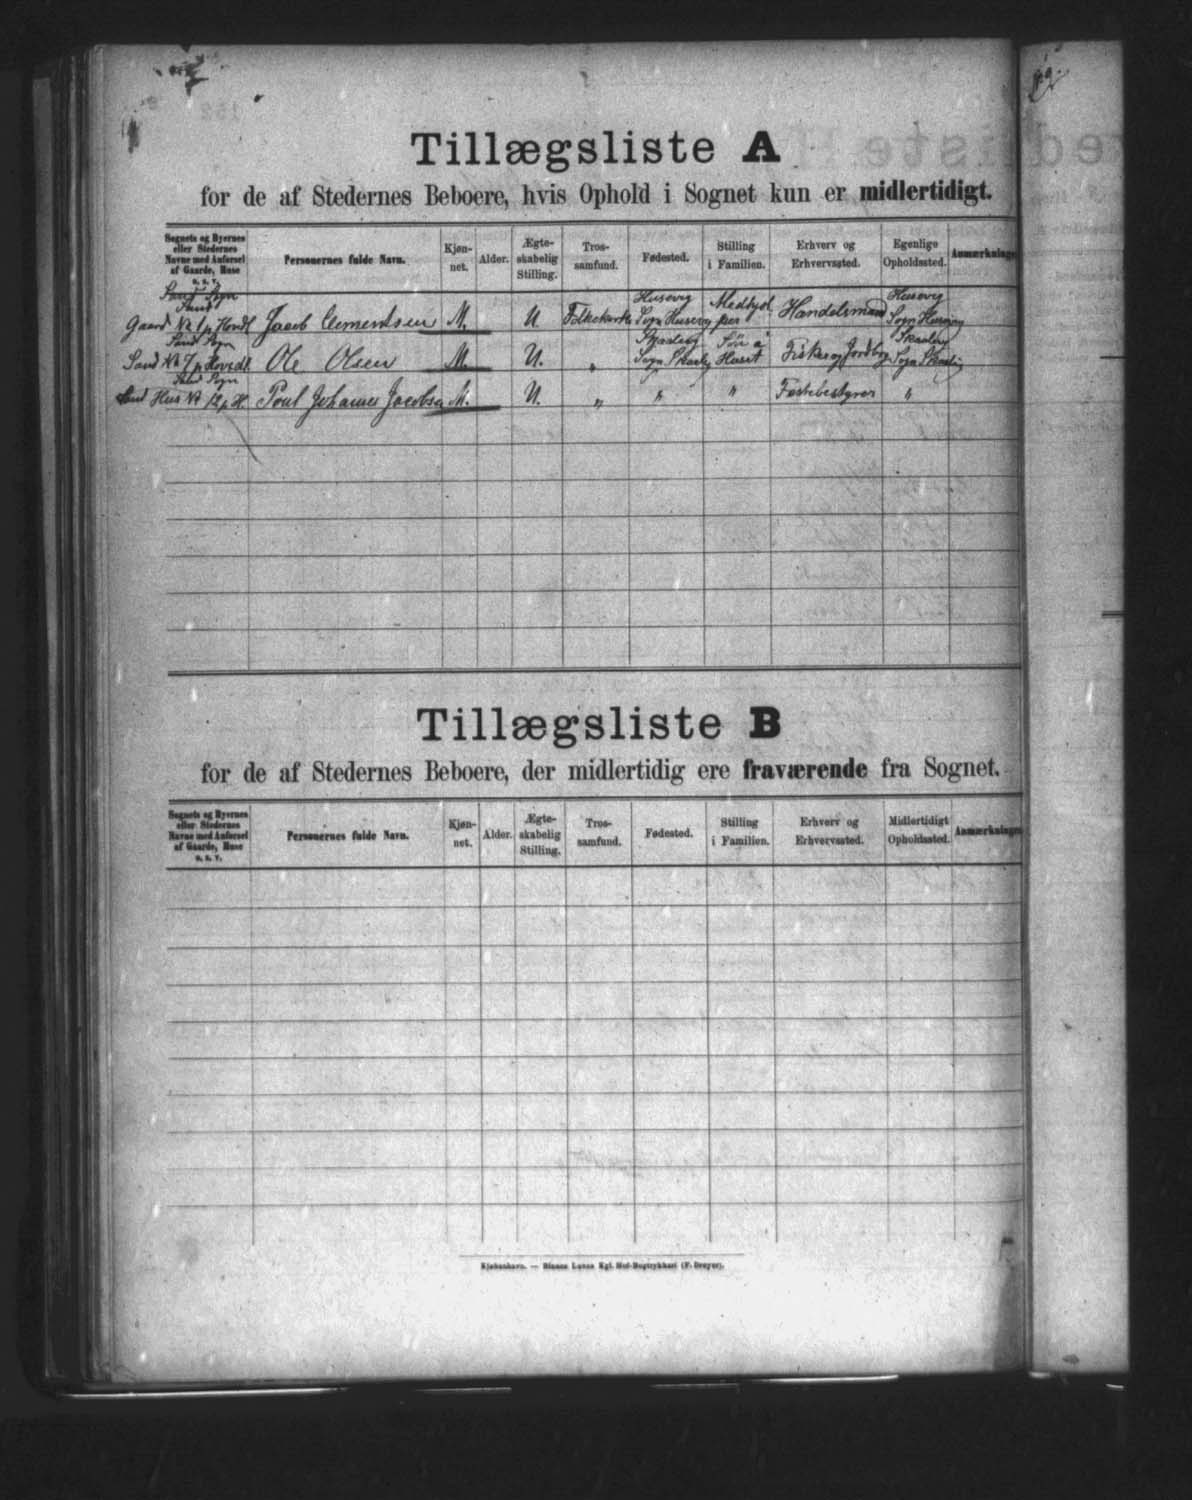 Tillægsliste A
for de af Stedernes Beboere, hvis Ophold i Sognet kun er midlertidigt.
Sognets og Byernes eller Stedernes Navne med Anførsel af Gaarde, Huse o. s. v. | Personernes fulde Navn. | Kjøn-net. | Alder. | Ægte-skabelig Stilling. | Tros-samfund. | Fødested. | Stilling i Familien. | Erhverv og Erhvervssted. | Egenlige Opholdssted. | Anmærkninger
Sand Sogn Sand Gaard No 1 Jacob Clementsen M. U. Folkekirke Husevig Sogn Husevig Handelsmand Husevig Sogn Husevig
Sand Sogn Sand No 7 Ole Olsen M. U. „ Skaalevig Sogn Søn a Huset Fisker og Jordbrug Skaalevig Sogn
Sand Sogn Sand Hus No 12 Poul Johannes Jacobsen M. U. „ „ „ Fæstebestyrer „
Tillægsliste B
for de af Stedernes Beboere, der midlertidig ere fraværende fra Sognet.
Sognets og Byernes eller Stedernes Navne med Anførsel af Gaarde, Huse o. s. v. | Personernes fulde Navn. | Kjøn-net. | Alder. | Ægte-skabelig Stilling. | Tros-samfund. | Fødested. | Stilling i Familien. | Erhverv og Erhvervssted. | Midlertidigt Opholdssted. | Anmærkninger
Kjøbenhavn. — Bianco Lunos Kgl. Hof-Bogtrykkeri (F. Dreyer).